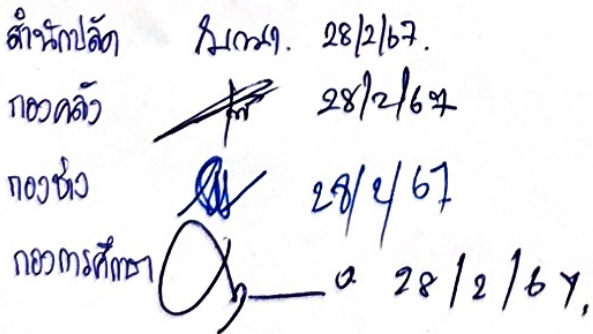 สำนักปลัด 28/2/67.
กองคลัง 28/2/67
กองช่าง 28/2/67
กองการศึกษา 28/2/67.